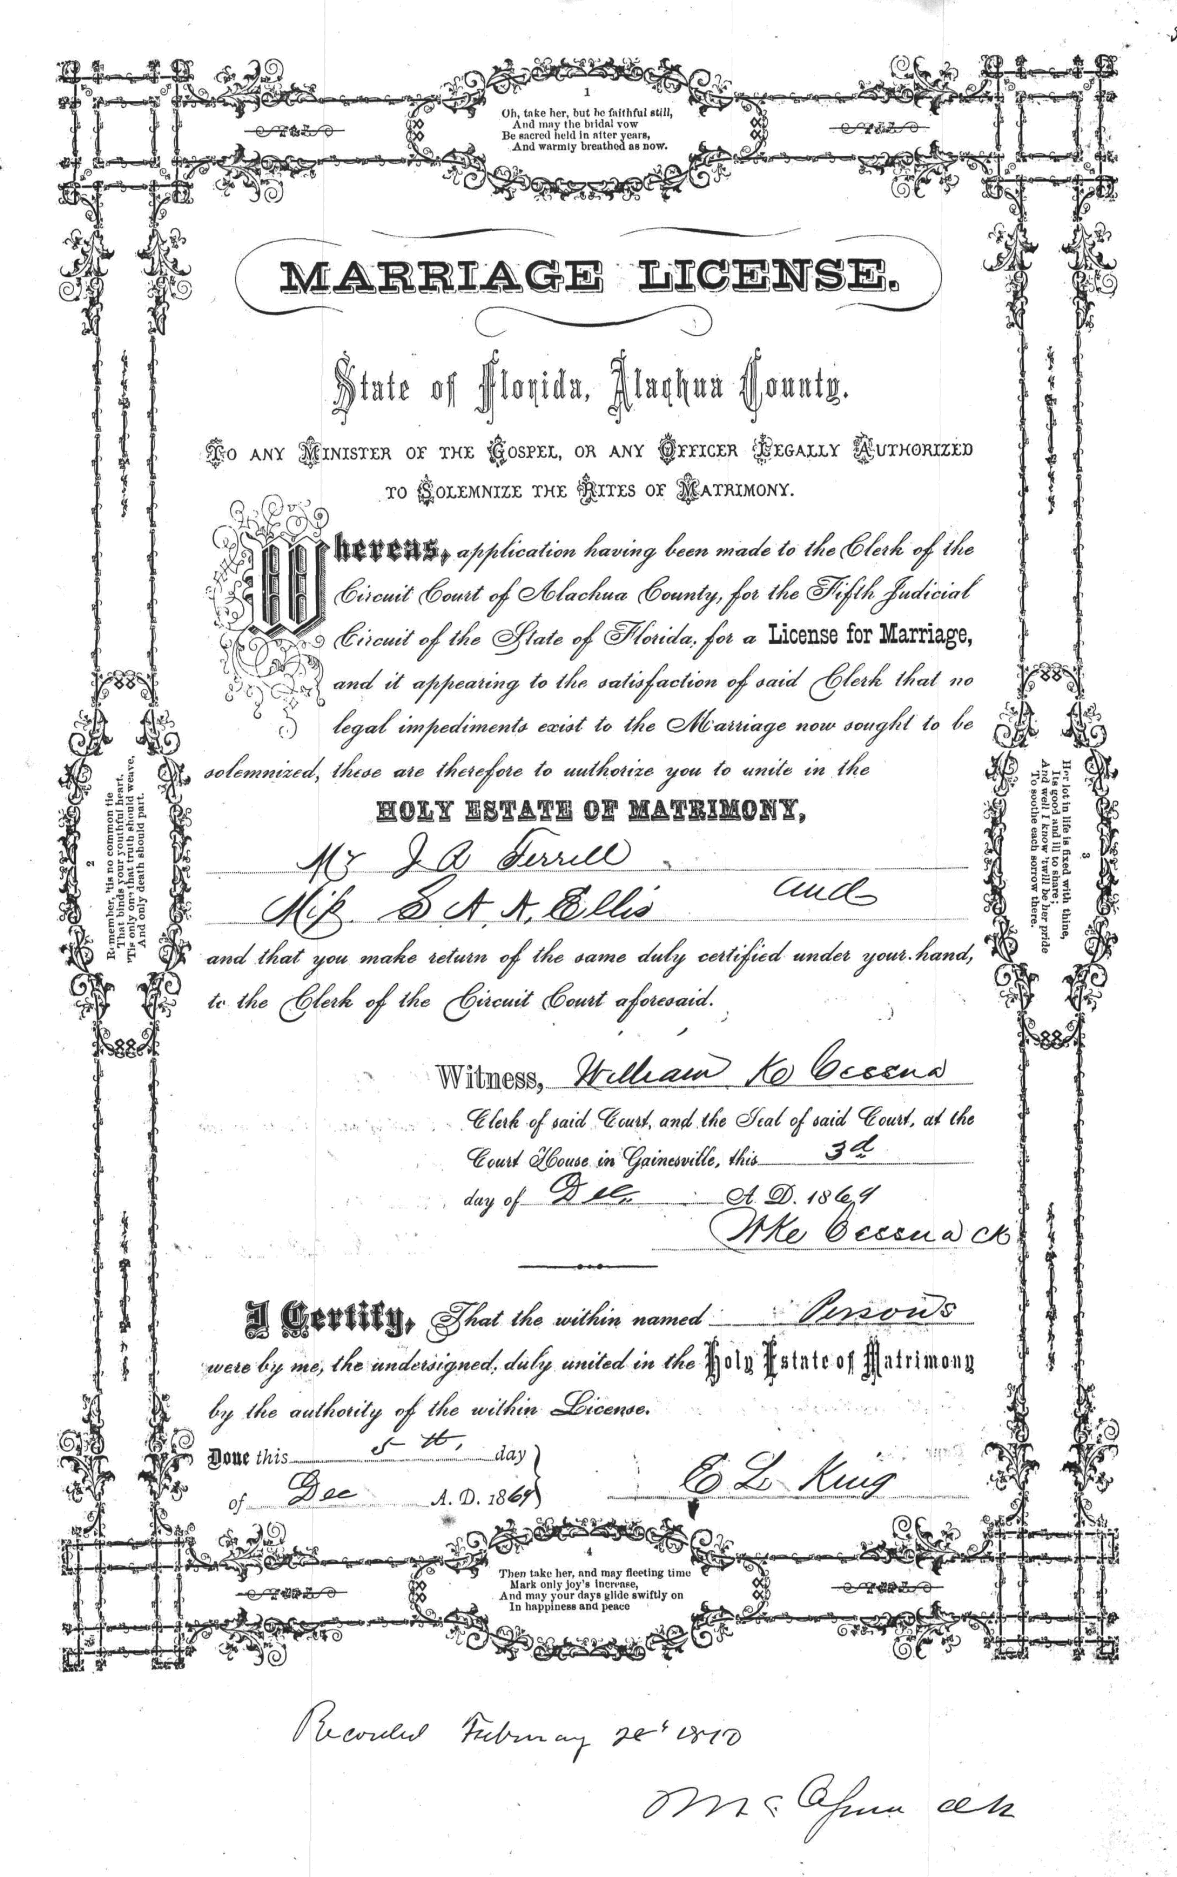 1
Oh, take her, but be faithful still,
And may the bridal vow
Be sacred held in after years,
And warmly breathed as now.
MARRIAGE LICENSE.
State of Florida, Alachua County.
TO ANY MINISTER OF THE GOSPEL, OR ANY OFFICER LEGALLY AUTHORIZED
TO SOLEMNIZE THE RITES OF MATRIMONY.
Whereas, application having been made to the Clerk of the
Circuit Court of Alachua County, for the Fifth Judicial
Circuit of the State of Florida, for a License for Marriage,
and it appearing to the satisfaction of said Clerk that no
legal impediments exist to the Marriage now sought to be
solemnized, these are therefore to authorize you to unite in the
HOLY ESTATE OF MATRIMONY,
Mr J A Ferrell
and
Miss. S. A. A. Ellis
and that you make return of the same duly certified under your hand,
to the Clerk of the Circuit Court aforesaid.
2
Remember, 'tis no common tie
That binds your youthful heart,
'Tis only one that truth should weave,
And only death should part.
3
Her lot in life is fixed with thine,
Its good and ill to share;
And well I know 'twill be her pride
To soothe each sorrow there.
Witness, William K Cessna
Clerk of said Court, and the Seal of said Court, at the
Court House in Gainesville, this 3d
day of Dec. A. D. 1869
WK Cessna Ck
I Certify, That the within named Persons
were by me, the undersigned, duly united in the Holy Estate of Matrimony
by the authority of the within License.
Done this 5th, day
of Dec A. D. 1869
E L King
4
Then take her, and may fleeting time
Mark only joy's increase,
And may your days glide swiftly on
In happiness and peace
Recorded February 1870